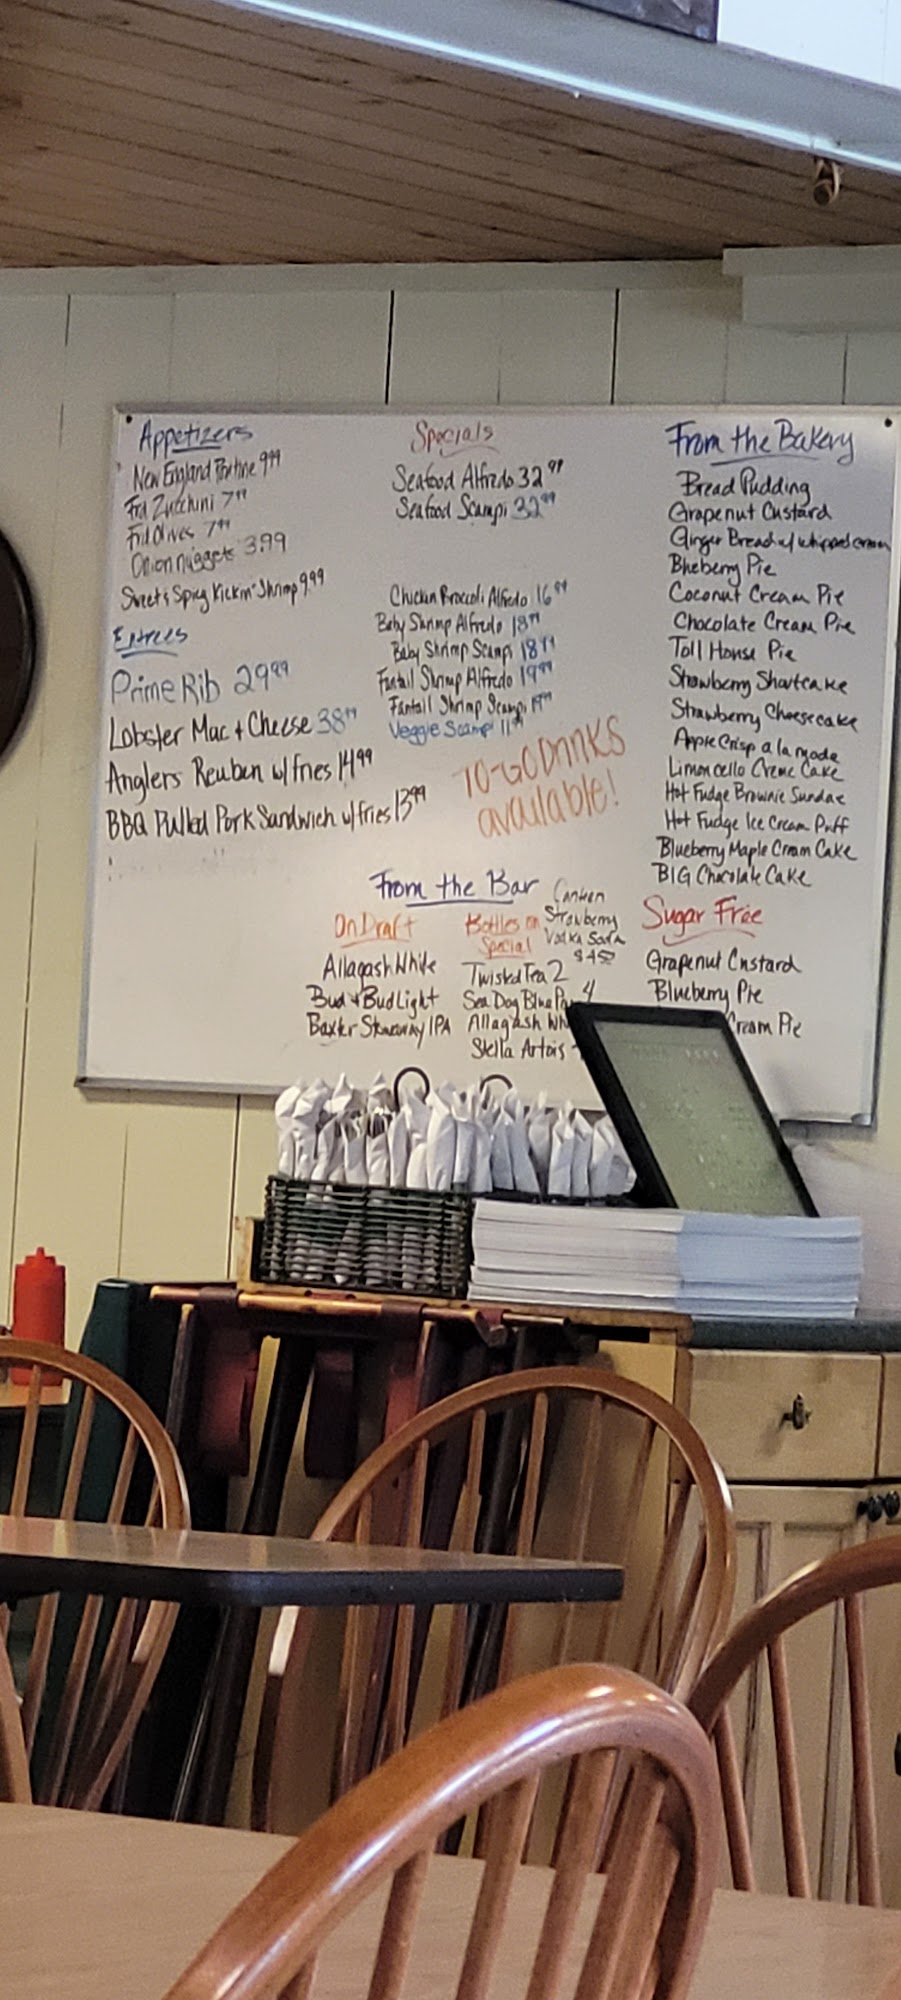 Appetizers
New England Poutine 9.99
Fried Zucchini 7.99
Fried Olives 7.99
Onion nuggets 3.99
Sweet & Spicy Kickin' Shrimp 9.99
Entrees
Prime Rib 29.99
Lobster Mac & Cheese 38.99
Anglers Reuben w/fries 14.99
BBQ Pulled Pork Sandwich w/fries 13.99
Specials
Seafood Alfredo 32.99
Seafood Scampi 32.99
Chicken Broccoli Alfredo 16.99
Baby Shrimp Alfredo 18.99
Baby Shrimp Scampi 18.99
Fantail Shrimp Alfredo 19.99
Fantail Shrimp Scampi 19.99
Veggie Scampi 11.99
TO-GO DRINKS
available!
From the Bakery
Bread Pudding
Grapenut Custard
Ginger Bread w/ whipped cream
Blueberry Pie
Coconut Cream Pie
Chocolate Cream Pie
Toll House Pie
Strawberry Shortcake
Strawberry Cheesecake
Apple Crisp a la mode
Limoncello Creme Cake
Hot Fudge Brownie Sundae
Hot Fudge Ice Cream Puff
Blueberry Maple Cream Cake
BIG Chocolate Cake
Sugar Free
Grapenut Custard
Blueberry Pie
Cream Pie
From the Bar
On Draft
Allagash White
Bud & Bud Light
Baxter Stowaway IPA
Bottles on
Special
Twisted Tea 2
Sea Dog Blue 4
Allagash
Stella Artois
Strawberry
Vodka Soda